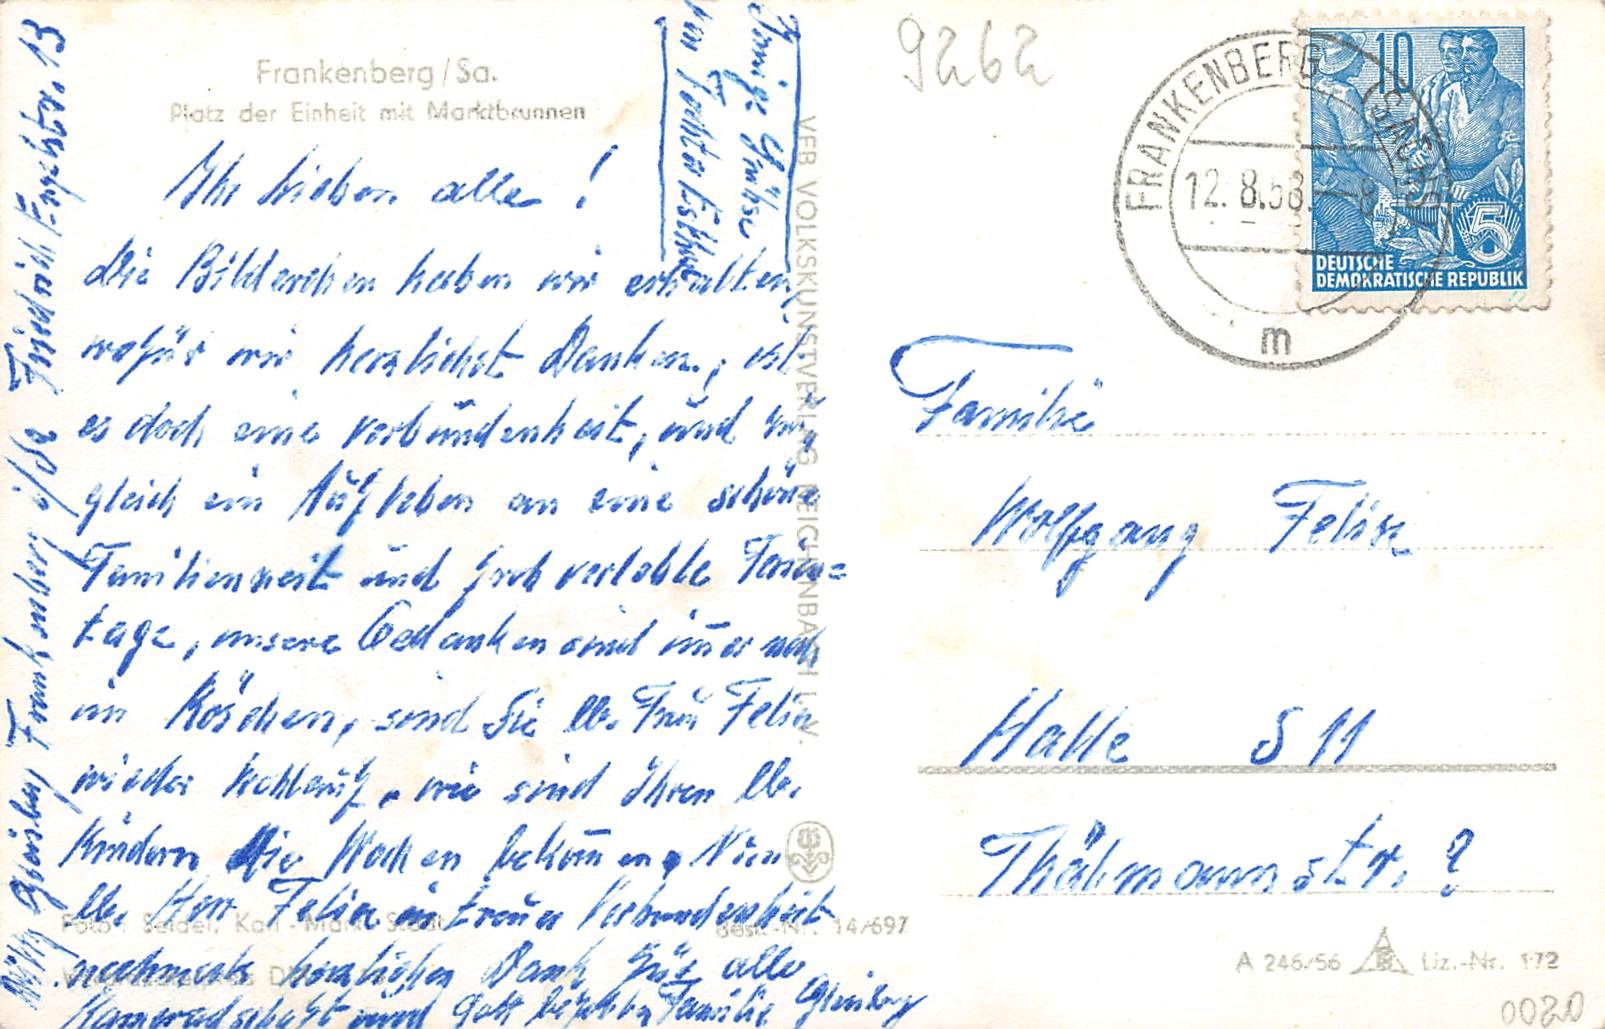 Frankenberg/Sa.
Platz der Einheit mit Marktbrunnen
Ihr lieben alle!
die Bilderchen haben wir erhalten,
wofür wir herzlichst Danken, ist
es doch eine verbundenheit, und zu
gleich ein Aufleben an eine schöne
Familienzeit und froh verlebte Ferien=
tage, unsere Gedanken sind immer noch
in Köschen, sind Sie lb. Frau Felix
wieder wohlauf, wie sind Ihren lb.
Kindern die Wochen bekommen, Nun
lb. Herr Felix in treuer Verbundenheit
nochmals herzlichen Dank Grüße alle
Kameradschaft und Gott Familie
Innige Grüsse
von Tochter Esther
Willy Frankenberg i/Sa Friedrich Engelsstr. 13
VEB VOLKSKUNSTVERLAG REICHENBACH i. V.
Foto: Seidel, Karl-Marx-Stadt
Best.-Nr. 14/697
9262
FRANKENBERG (SACHS)
12.8.58.-8
m
10
5
DEUTSCHE
DEMOKRATISCHE REPUBLIK
Familie
Wolfgang Felix
Halle S 11
Thälmannstr. ?
A 246/56 Liz.-Nr. 172
0020